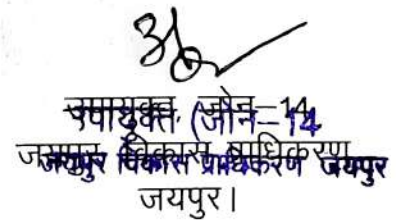 उपायुक्त, जोन-14,
उपायुक्त (जोन-14
जयपुर विकास प्राधिकरण
जयपुर विकास प्राधिकरण जयपुर
जयपुर।